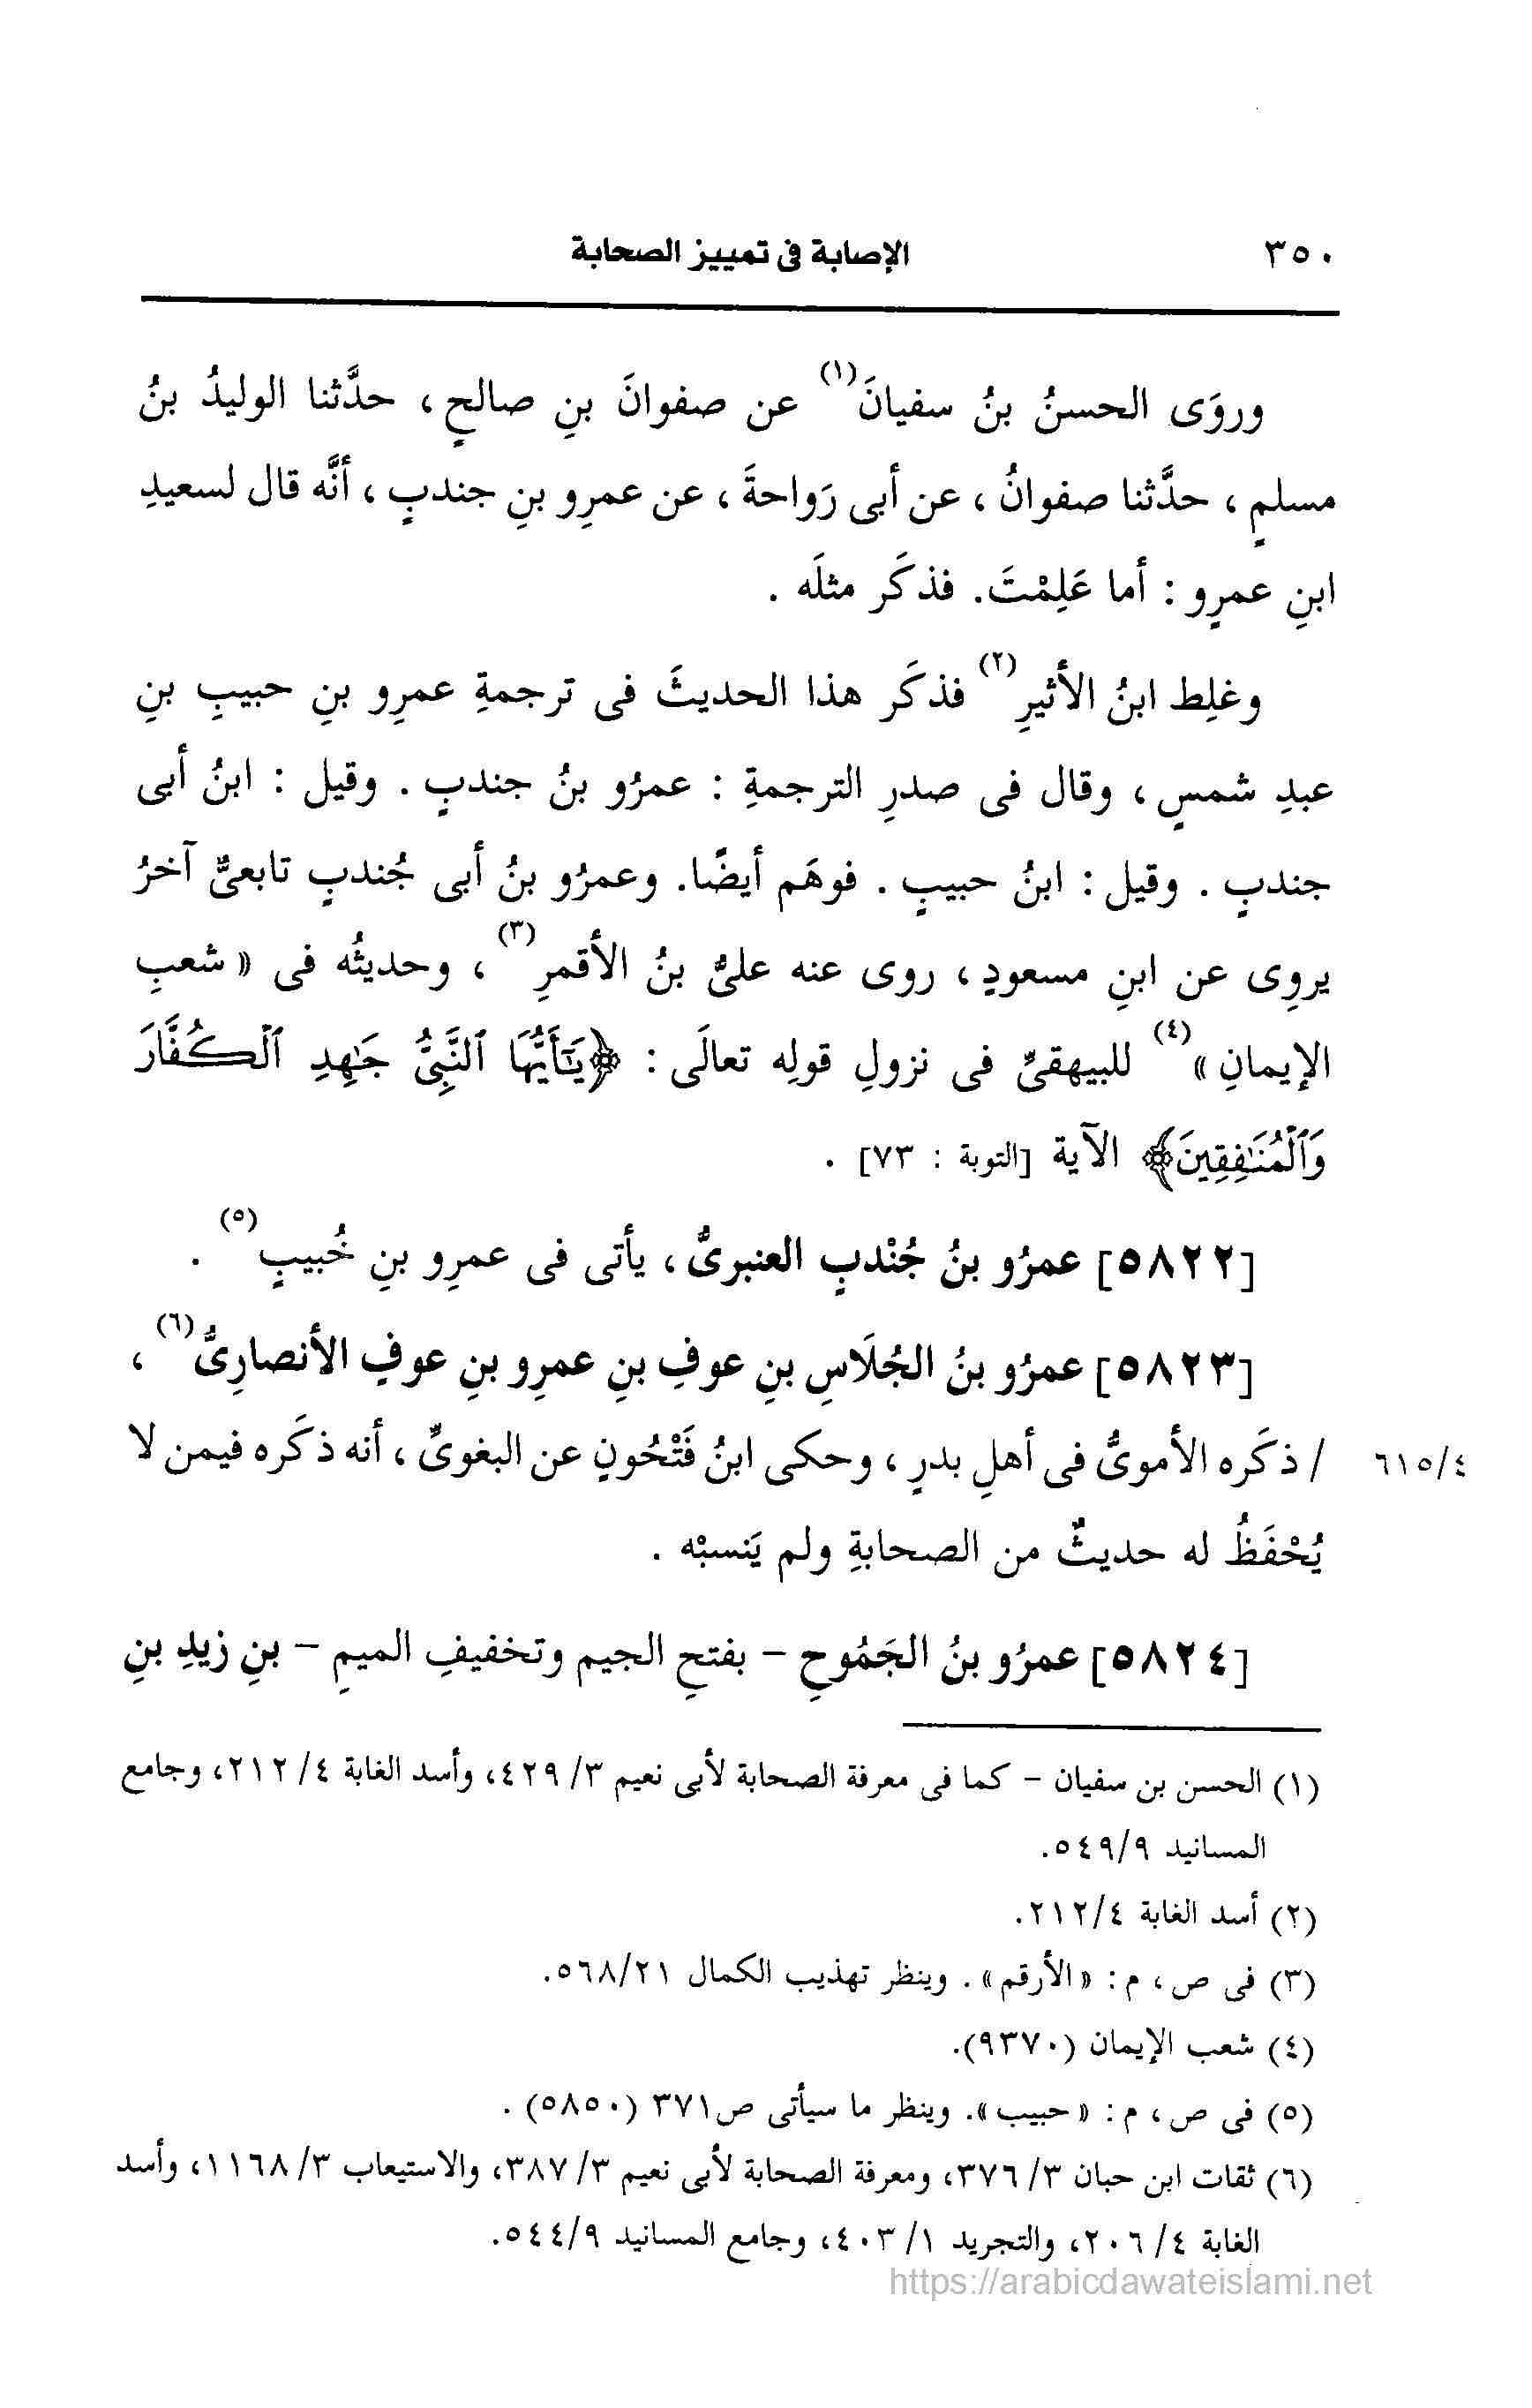 ٣٥٠ الإصابة فى تمييز الصحابة
وروَى الحسنُ بنُ سفيانَ(١) عن صفوانَ بنِ صالحٍ، حدَّثنا الوليدُ بنُ
مسلمٍ، حدَّثنا صفوانُ، عن أبى رَواحةَ، عن عمرِو بنِ جندبٍ، أنَّه قال لسعيدِ
ابنِ عمرٍو: أما عَلِمْتَ. فذكَر مثلَه.
وغلِط ابنُ الأثيرِ(٢) فذكَر هذا الحديثَ فى ترجمةِ عمرِو بنِ حبيبِ بنِ
عبدِ شمسٍ، وقال فى صدرِ الترجمةِ: عمرُو بنُ جندبٍ. وقيل: ابنُ أبى
جندبٍ. وقيل: ابنُ حبيبٍ. فوهَم أيضًا. وعمرُو بنُ أبى جُندبٍ تابعىٌّ آخرُ
يروِى عن ابنِ مسعودٍ، روى عنه علىُّ بنُ الأقمرِ(٣)، وحديثُه فى «شعبِ
الإيمانِ»(٤) للبيهقىِّ فى نزولِ قولِه تعالَى: ﴿يَـٰٓأَيُّهَا ٱلنَّبِىُّ جَـٰهِدِ ٱلْكُفَّارَ
وَٱلْمُنَـٰفِقِينَ﴾ الآية [التوبة: ٧٣].
[٥٨٢٢] عمرُو بنُ جُنْدبٍ العنبرىُّ، يأتى فى عمرِو بنِ خُبيبٍ(٥).
[٥٨٢٣] عمرُو بنُ الجُلَاسِ بنِ عوفِ بنِ عمرِو بنِ عوفٍ الأنصارِىُّ(٦)،
٦١٥/٤ / ذكَره الأموىُّ فى أهلِ بدرٍ، وحكى ابنُ فَتْحُونٍ عن البغوىِّ، أنه ذكَره فيمن لا
يُحْفَظُ له حديثٌ من الصحابةِ ولم يَنسبْه.
[٥٨٢٤] عمرُو بنُ الجَمُوحِ - بفتحِ الجيم وتخفيفِ الميمِ - بنِ زيدِ بنِ
(١) الحسن بن سفيان - كما فى معرفة الصحابة لأبى نعيم ٣/ ٤٢٩، وأسد الغابة ٤/ ٢١٢، وجامع
المسانيد ٥٤٩/٩.
(٢) أسد الغابة ٢١٢/٤.
(٣) فى ص، م: «الأرقم». وينظر تهذيب الكمال ٥٦٨/٢١.
(٤) شعب الإيمان (٩٣٧٠).
(٥) فى ص، م: «حبيب». وينظر ما سيأتى ص٣٧١ (٥٨٥٠).
(٦) ثقات ابن حبان ٣/ ٣٧٦، ومعرفة الصحابة لأبى نعيم ٣/ ٣٨٧، والاستيعاب ٣/ ١١٦٨، وأسد
الغابة ٤/ ٢٠٦، والتجريد ١/ ٤٠٣، وجامع المسانيد ٥٤٤/٩.
https://arabicdawateislami.net